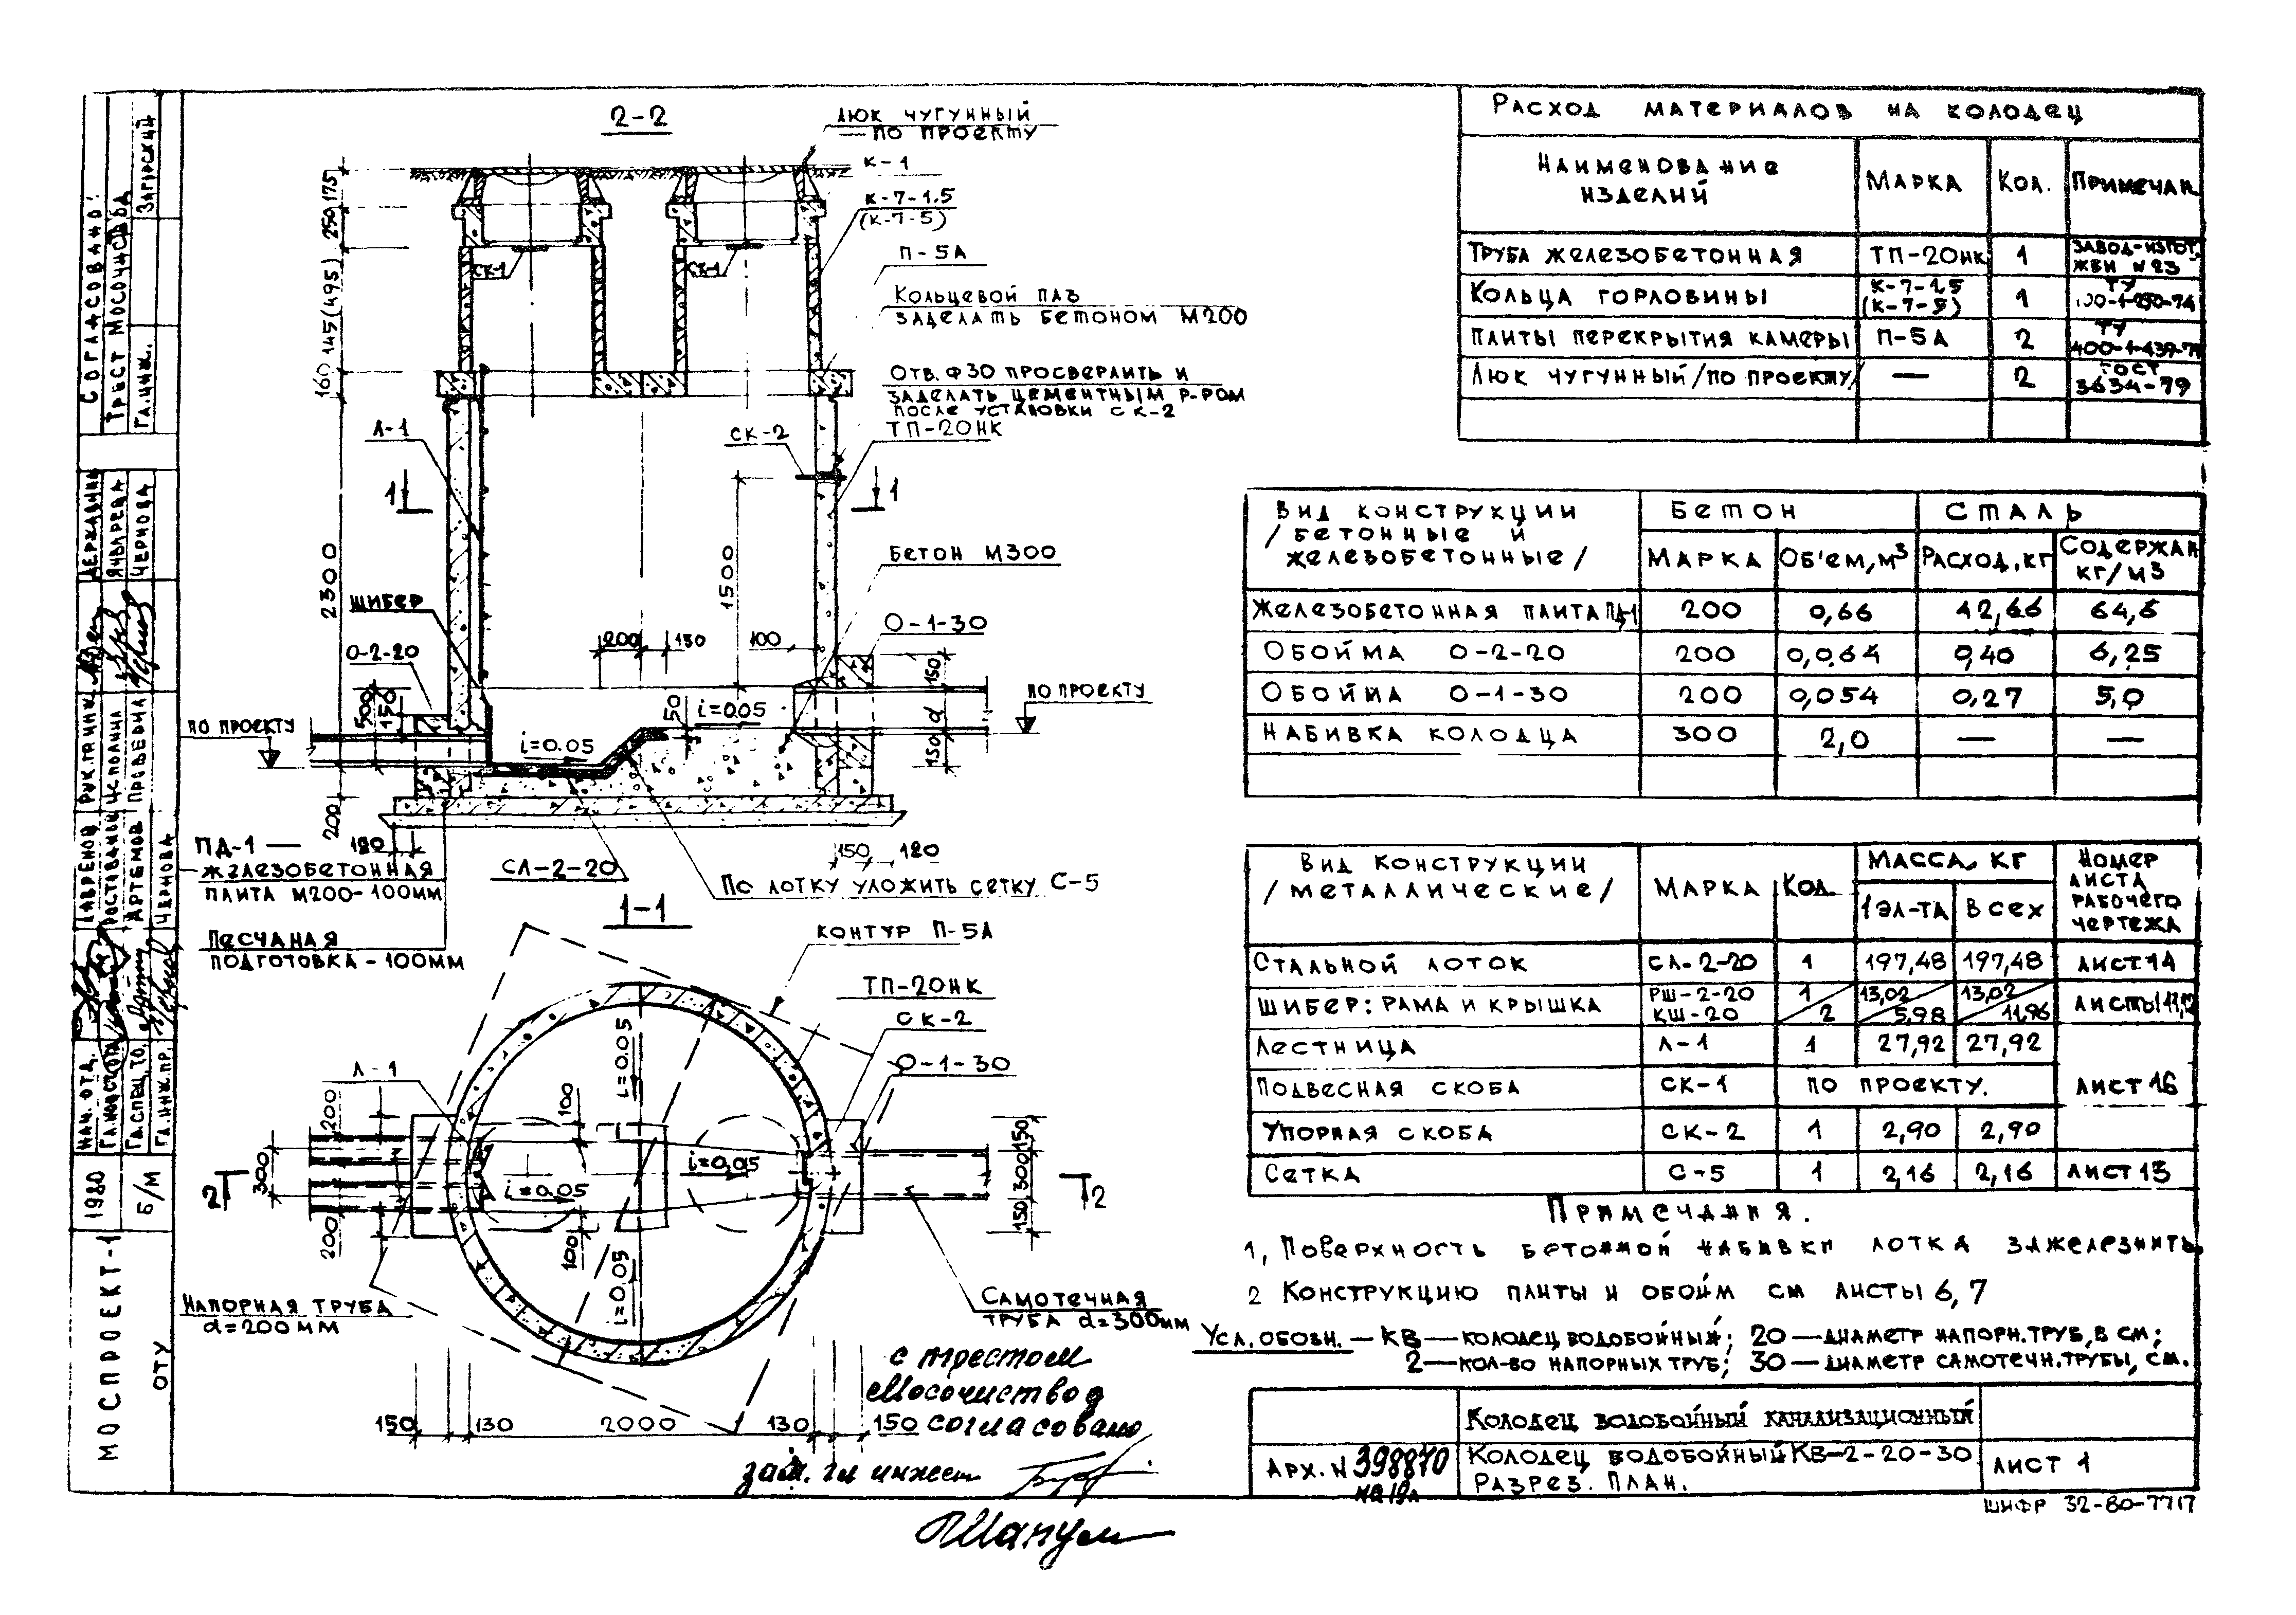 2-2
ЛЮК ЧУГУННЫЙ
ПО ПРОЕКТУ
К-1
К-7-1.5
(К-7-5)
П-5А
КОЛЬЦЕВОЙ ПАЗ
ЗАДЕЛАТЬ БЕТОНОМ М200
ОТВ. Ф30 ПРОСВЕРЛИТЬ И
ЗАДЕЛАТЬ ЦЕМЕНТНЫМ Р-РОМ
ПОСЛЕ УСТАНОВКИ СК-2
ТП-20НК
СК-1 СК-1
СК-2
Л-1
1 1
БЕТОН М300
О-1-30
ШИБЕР
О-2-20
ПО ПРОЕКТУ
ПО ПРОЕКТУ
175
250
145(495)
160
2300
200
1500
200 130 100
500
150
50
i=0.05
i=0.05
150
d
150
120
150 120
ПД-1 —
ЖЕЛЕЗОБЕТОННАЯ
ПЛИТА М200-100ММ
ПЕСЧАНАЯ
ПОДГОТОВКА-100ММ
СЛ-2-20
ПО ЛОТКУ УЛОЖИТЬ СЕТКУ С-5
1-1
КОНТУР П-5А
ТП-20НК
СК-2
О-1-30
Л-1
i=0.05
i=0.05
i=0.05
i=0.05
200
300
200
100
100
150
300
150
2 2
НАПОРНАЯ ТРУБА
d=200ММ
САМОТЕЧНАЯ
ТРУБА d=300ММ
150 130 2000 130 150
с трестом
Мосочиствод
согласовано
зам. гл инжен
РАСХОД МАТЕРИАЛОВ НА КОЛОДЕЦ
НАИМЕНОВАНИЕ ИЗДЕЛИЙ МАРКА КОЛ. ПРИМЕЧАН.
ТРУБА ЖЕЛЕЗОБЕТОННАЯ ТП-20НК 1 ЗАВОД-ИЗГОТ. ЖБИ N23
КОЛЬЦА ГОРЛОВИНЫ К-7-1.5 (К-7-5) 1 ТУ
ПЛИТЫ ПЕРЕКРЫТИЯ КАМЕРЫ П-5А 2 ТУ
ЛЮК ЧУГУННЫЙ/ПО ПРОЕКТУ/ — 2 ГОСТ 3634-79
ВИД КОНСТРУКЦИИ /БЕТОННЫЕ И ЖЕЛЕЗОБЕТОННЫЕ/ БЕТОН СТАЛЬ
МАРКА ОБ'ЕМ, М3 РАСХОД, КГ СОДЕРЖАН КГ/М3
ЖЕЛЕЗОБЕТОННАЯ ПЛИТА ПД-1 200 0,66 42,66 64,6
ОБОЙМА О-2-20 200 0,064 0,40 6,25
ОБОЙМА О-1-30 200 0,054 0,27 5,0
НАБИВКА КОЛОДЦА 300 2,0 — —
ВИД КОНСТРУКЦИИ /МЕТАЛЛИЧЕСКИЕ/ МАРКА КОЛ. МАССА, КГ НОМЕР ЛИСТА РАБОЧЕГО ЧЕРТЕЖА
1 ЭЛ-ТА ВСЕХ
СТАЛЬНОЙ ЛОТОК СЛ-2-20 1 197,48 197,48 ЛИСТ 14
ШИБЕР: РАМА И КРЫШКА РШ-2-20 КШ-20 1/2 13,02/5,98 13,02/11,96 ЛИСТЫ 11,12
ЛЕСТНИЦА Л-1 1 27,92 27,92
ПОДВЕСНАЯ СКОБА СК-1 ПО ПРОЕКТУ. ЛИСТ 16
УПОРНАЯ СКОБА СК-2 1 2,90 2,90
СЕТКА С-5 1 2,16 2,16 ЛИСТ 13
ПРИМЕЧАНИЯ.
1, ПОВЕРХНОСТЬ БЕТОННОЙ НАБИВКИ ЛОТКА ЗАЖЕЛЕЗНИТЬ
2 КОНСТРУКЦИЮ ПЛИТЫ И ОБОЙМ СМ ЛИСТЫ 6,7
УСЛ. ОБОЗН. — КВ — КОЛОДЕЦ ВОДОБОЙНЫЙ; 20 — ДИАМЕТР НАПОРН. ТРУБ, В СМ;
2 — КОЛ-ВО НАПОРНЫХ ТРУБ; 30 — ДИАМЕТР САМОТЕЧН. ТРУБЫ, СМ.
КОЛОДЕЦ ВОДОБОЙНЫЙ КАНАЛИЗАЦИОННЫЙ
АРХ. N 398870
КОЛОДЕЦ ВОДОБОЙНЫЙ КВ-2-20-30
РАЗРЕЗ. ПЛАН.
ЛИСТ 1
ШИФР 32-80-7717
СОГЛАСОВАНО:
ТРЕСТ МОСОЧИСТВОД
ГЛ. ИНЖ. ЗАГОРСКИЙ
РУК. ГР. ИНЖ. ДЕРЖАВИНА
ИСПОЛНИЛ ЯНВАРЕВА
ПРОВЕРИЛ ЧЕРНОВА
НАЧ. ОТД. ЛАВРЕНОВ
ГЛ. СПЕЦ. ТО АРТЕМОВ
ГЛ. ИНЖ. ПР. ЧЕРНОВА
1980 Б/М
МОСПРОЕКТ-1
ОТУ